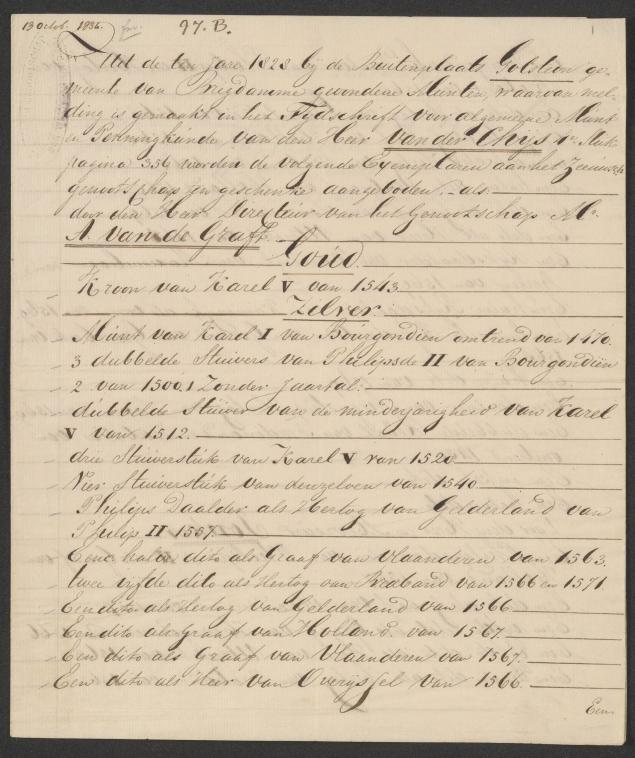 13 Octob. 1836.
97. B.
Uit de ten jare 1828 bij de Buitenplaats Golstein ge-
meente van Brigdamme gevondene Munten, waarvan mel-
ding is gemaakt in het Tijdschrift voor algemeene Munt
en Penningkunde van den Heer van der Chijs 1e. Stuk
pagina 336 worden de volgende Exemplaren aan het Zeeuwsch
genootschap ten geschenke aangeboden.- als
door den Heer Directeur van het Genootschap Mr.
A van de Graft.
Goud.
Kroon van Karel V van 1543.
Zilver.
Munt van Karel I van Bourgondien omtrend van 1470.
3 dubbelde Stuivers van Philips de II van Bourgondien
2 van 1500. 1 Zonder Jaartal.
dubbelde Stuiver van de minderjarigheid van Karel
V van 1512.
drie Stuiverstuk van Karel V van 1520
Vier Stuiverstuk van denzelven van 1540
Philips Daalder als Hertog van Gelderland van
Philip II 1567.
Eene halve dito als Graaf van Vlaanderen van 1563.
twee vijfde dito als Hertog van Braband van 1566 en 1571
Een dito als Hertog van Gelderland van 1566
Een dito als Graaf van Holland van 1567.
Een dito als Graaf van Vlaanderen van 1567.
Een dito als Heer van Overyssel van 1566.
Een